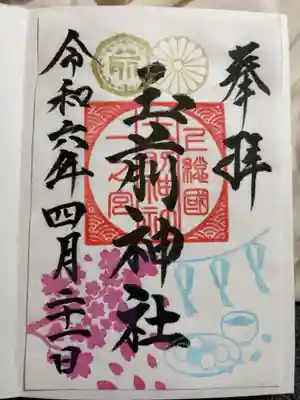 奉拝
上總國
一之宮
玉前神社
令和六年四月二十一日